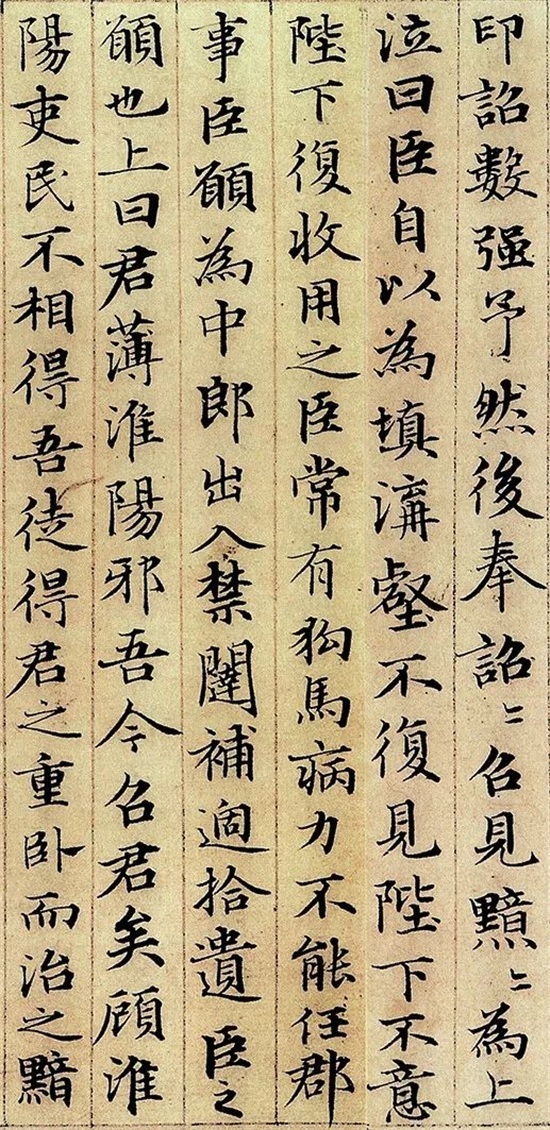 印詔數强予然後奉詔〻召見黯〻為上
泣曰臣自以為填溝壑不復見陛下不意
陛下復收用之臣常有狗馬病力不能任郡
事臣願為中郎出入禁闥補過拾遺臣之
願也上曰君薄淮陽邪吾今召君矣顧淮
陽吏民不相得吾徒得君之重卧而治之黯